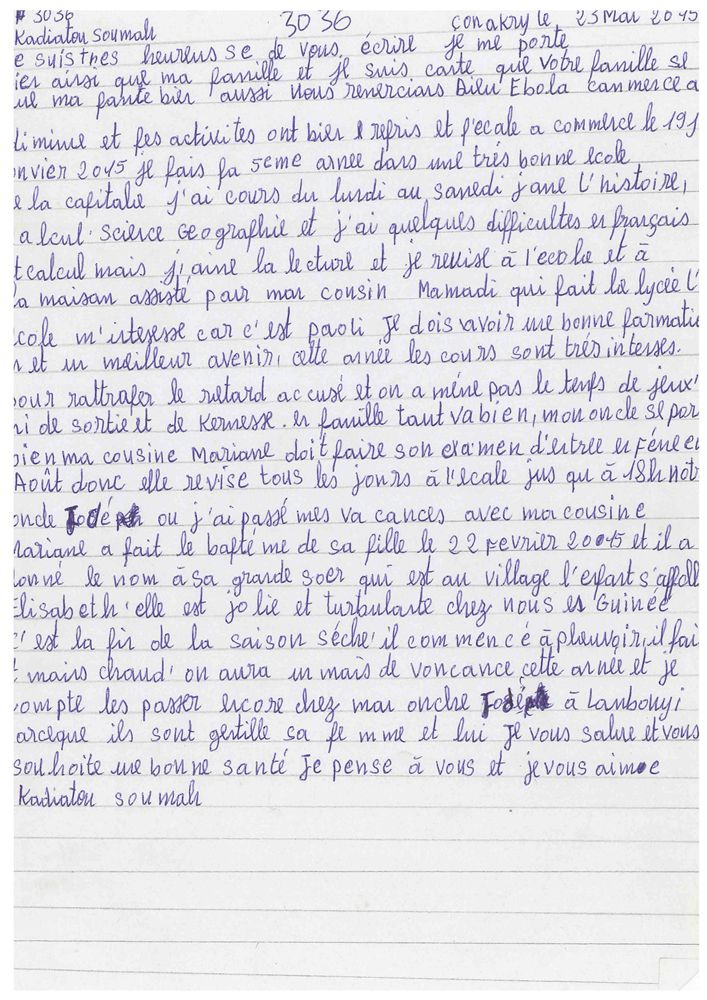 # 3036 3036 Conakry le, 23 Mai 2015
Kadiatou Soumah
e suis tres heureus se de vous écrire je me porte
ien ainsi que ma famille et je suis certe que votre famille se
ue ma porte bien aussi nous renercians Dieu Ebola canmerce a
diminue et les activites ont bien repris et l'ecale a commerce le 19 j
nvier 2015 Je fais la 5eme année dans une trés bonne ecole
e la capitale j'ai cours du lundi au sanedi j'ane l'histoire,
alcul. Science Geographie et j'ai quelques difficultes en français
t calcul mais j'aine la lecture et je revise à l'ecole et à
a maison assisté pour mon cousin Mamadi qui fait le lycée l'
cole m'interesse car c'est pavoli Je dois avoir une bonne farmatio
n et un meilleur avenir, cette année les cours sont trés intenses.
pour rattrafer le retard accusé et on a méne pas le tenfs de jeux'
ni de sortie et de Kernesse. en famille taut va bien, mon oncle se por
bien ma cousine Mariane doit faire son examen d'entree en Féne en
Août donc elle revise tous les jours à l'ecale jus qu à 18h notr
oncle Jodéph ou j'ai passé mes va cances avec ma cousine
Mariane a fait le baftéme de sa fille le 22 Fevrier 2015 et il a
donné le nom à sa grande soer qui est au village l'enfant s'affell
Elisabeth' elle est jolie et turbulante chez nous en Guinée
c'est la fin de la saison séche' il commencé à pleuvoir, il fai
t mains chaud' on aura un mais de voncance cette année et je
compte les passer encore chez mon onche Jodéph à Lanbonyi
arceque ils sont gentille sa fe mme et lui Je vous salue et vous
souhoite une bonne santé Je pense à vous et je vous aime
Kadiatou soumah